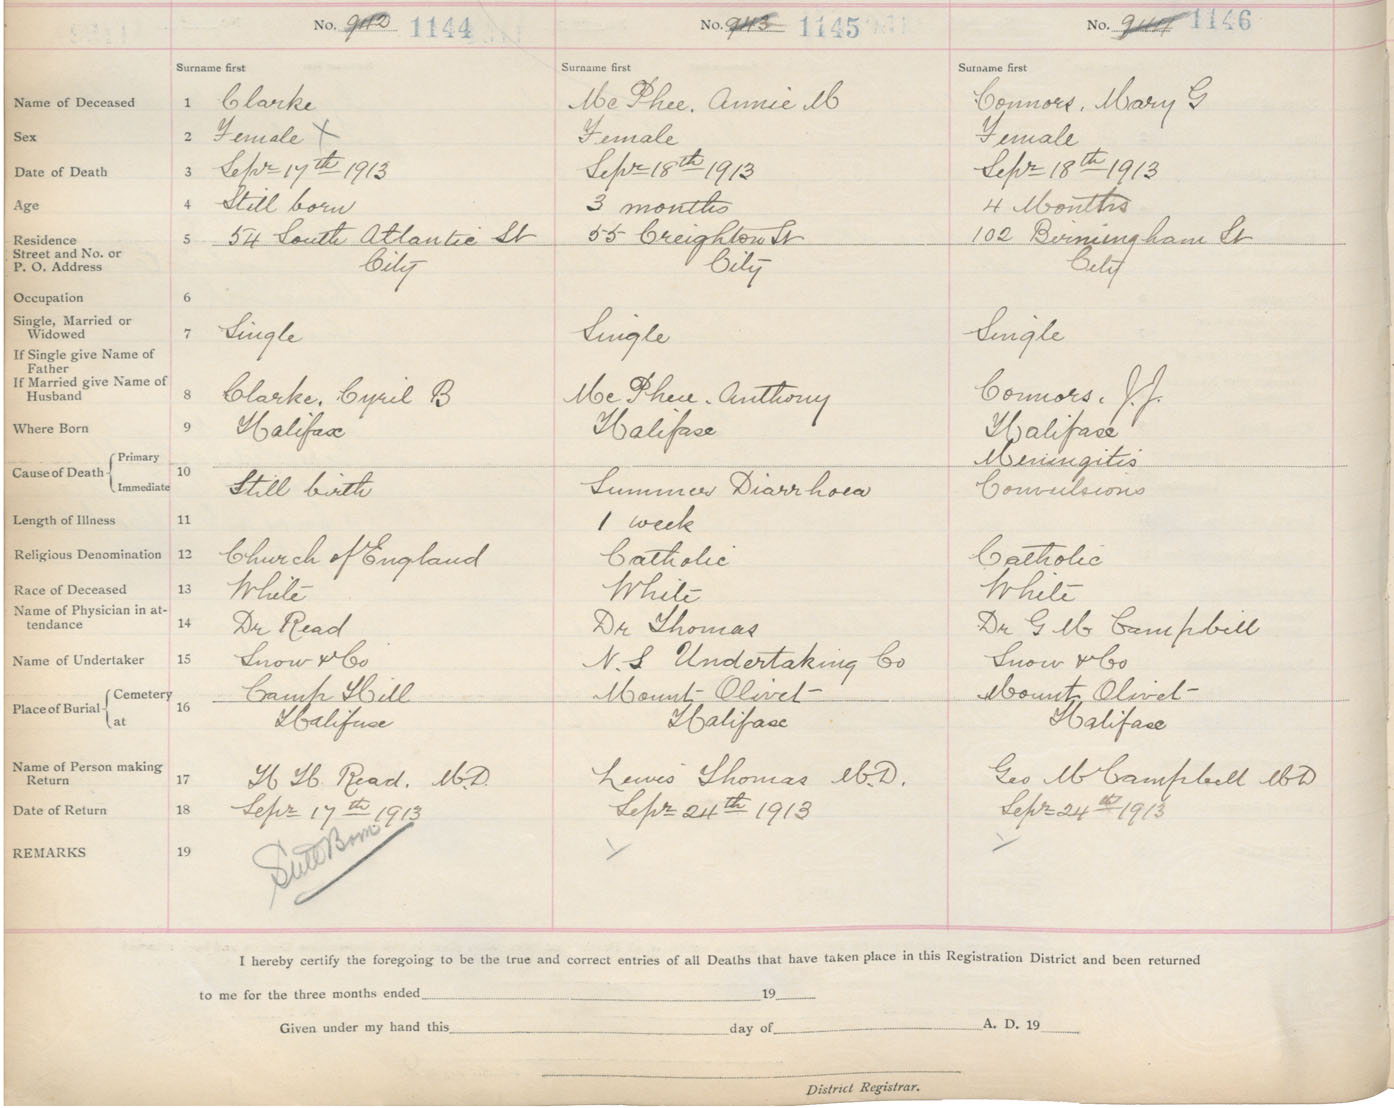 No. 942 1144 No. 943 1145 No. 944 1146
Surname first Surname first Surname first
Name of Deceased 1 Clarke Mc Phee, Annie M Connors, Mary G
Sex 2 Female X Female Female
Date of Death 3 Sepr 17th 1913 Sepr 18th 1913 Sepr 18th 1913
Age 4 Still born 3 months 4 Months
Residence 5 54 South Atlantic St 55 Creighton St 102 Birmingham St
Street and No. or
P. O. Address City City City
Occupation 6
Single, Married or
Widowed 7 Single Single Single
If Single give Name of
Father
If Married give Name of
Husband 8 Clarke, Cyril B Mc Phee, Anthony Connors, J.J.
Where Born 9 Halifax Halifax Halifax
Primary Meningitis
Cause of Death 10
Immediate Still birth Summer Diarrhoea Convulsions
Length of Illness 11 1 week
Religious Denomination 12 Church of England Catholic Catholic
Race of Deceased 13 White White White
Name of Physician in at-
tendance 14 Dr Read Dr Thomas Dr G M Campbell
Name of Undertaker 15 Snow & Co N.S Undertaking Co Snow & Co
Cemetery Camp Hill Mount Olivet Mount Olivet
Place of Burial 16
at Halifax Halifax Halifax
Name of Person making
Return 17 H H Read. M.D. Lewis Thomas M.D. Geo M Campbell MD
Date of Return 18 Sepr 17th 1913 Sepr 24th 1913 Sepr 24th 1913
REMARKS 19 Still Born
I hereby certify the foregoing to be the true and correct entries of all Deaths that have taken place in this Registration District and been returned
to me for the three months ended 19
Given under my hand this day of A. D. 19
District Registrar.